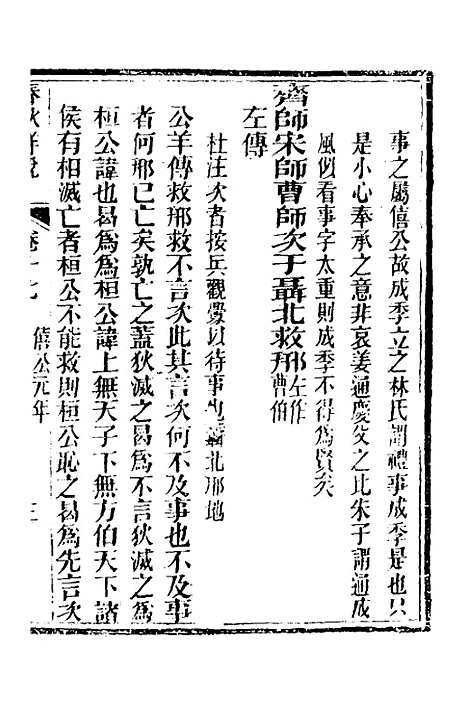 事之屬僖公故成季立之林氏謂禮事成季是也只
是小心奉承之意非哀姜通慶父之比朱子謂通成
風但看事字太重則成季不得為賢矣
齊師宋師曹師次于聶北救邢左作曹伯
左傳
杜注次者按兵觀釁以待事也聶北邢地
公羊傳救邢救不言次此其言次何不及事也不及事
者何邢已亡矣孰亡之蓋狄滅之曷為不言狄滅之為
桓公諱也曷為為桓公諱上無天子下無方伯天下諸
侯有相滅亡者桓公不能救則桓公恥之曷為先言次
春秋詳說 卷十七 僖公元年 三